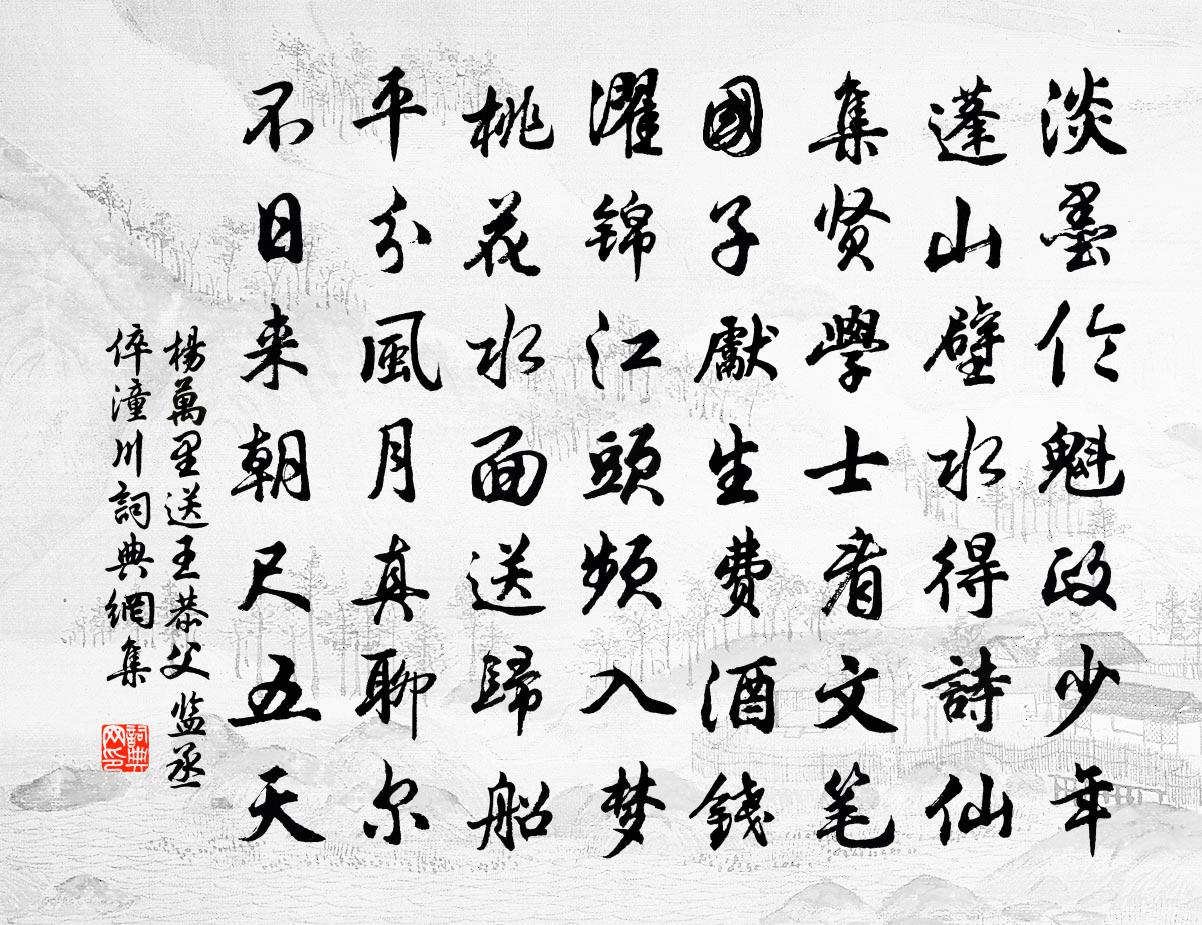 淡墨伦魁政少年
蓬山璧水得詩仙
集贤學士看文笔
國子獻生費酒錢
濯锦江頭頻入梦
桃花水面送歸船
平分風月真聊尔
不日来朝尺五天
楊萬里送王恭父监丞
倅潼川詞典網集
詞典网印